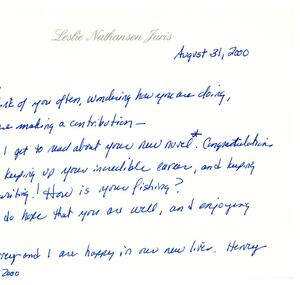 Leslie Nathansen Juris
August 31, 2000
of you often, wondering how you are doing,
making a contribution —
I get to read about your new novel*. Congratulations
keeping up your incredible career, and keeping
writing! How is your fishing?
do hope that you are well, and enjoying
and I are happy in our new lives. Henry
2000